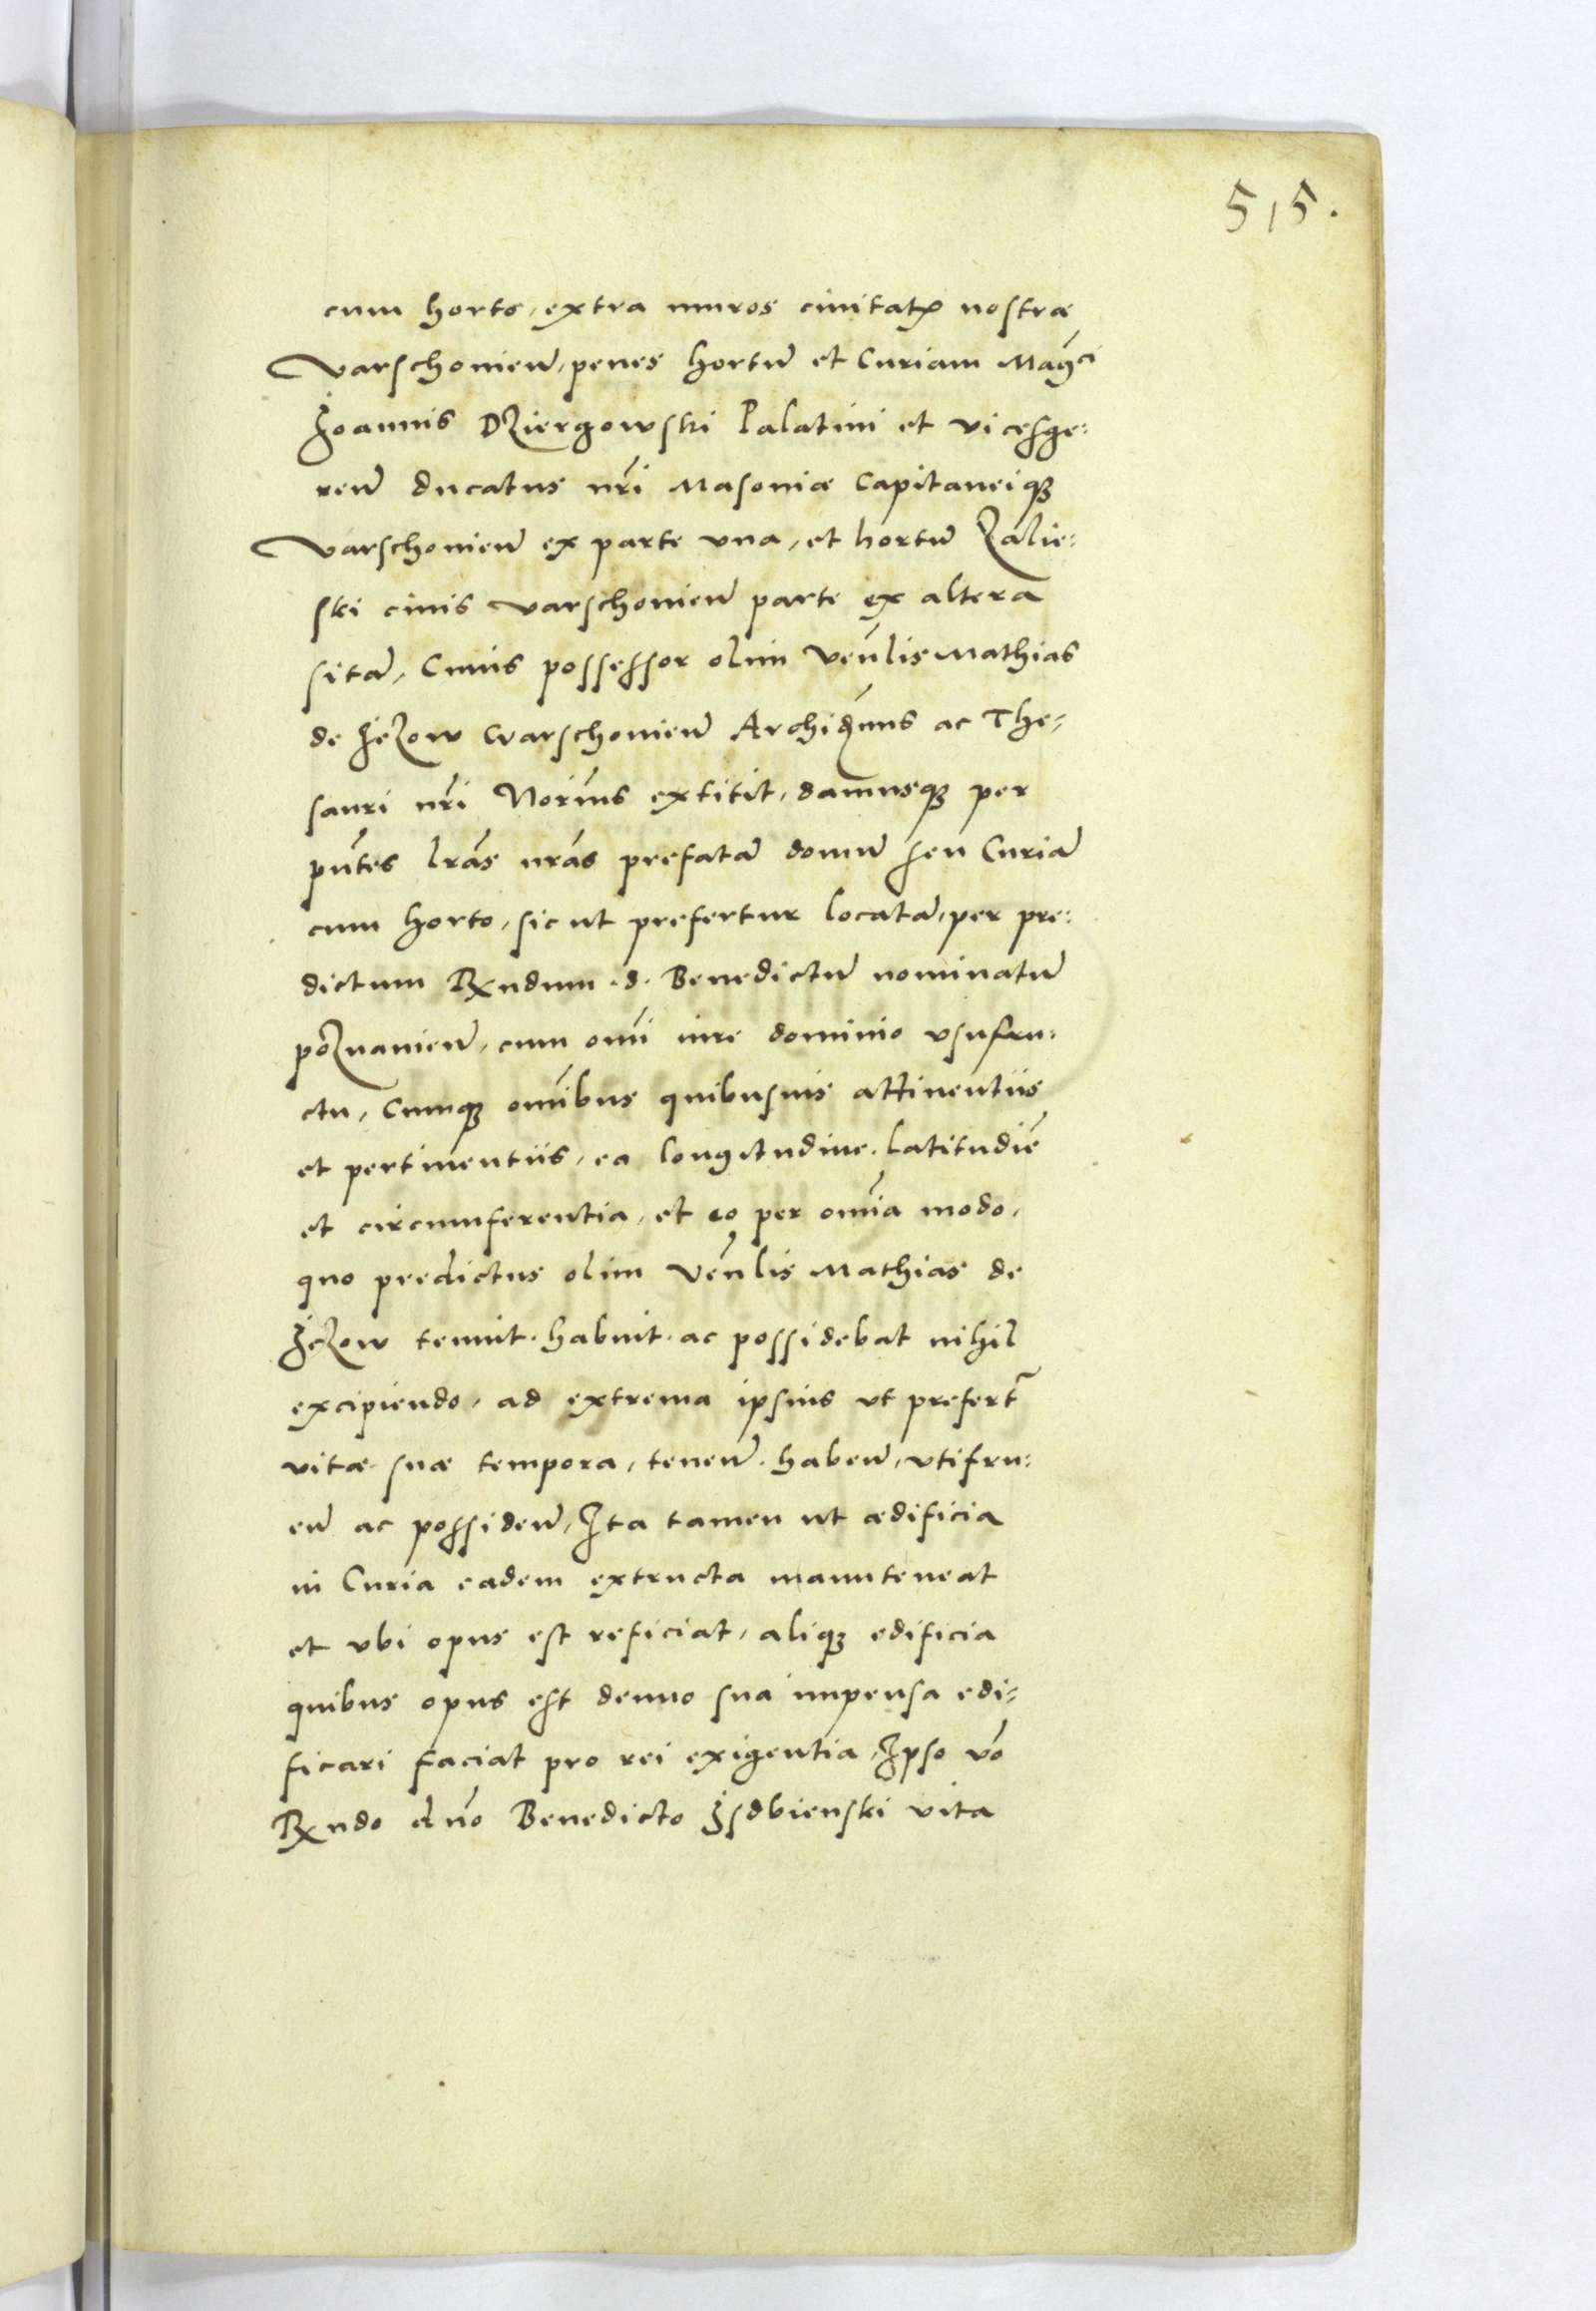 515.
cum horto, extra muros ciuitatꝭ nostræ
Varschonień, penes hortū et Curiam Magci
Joannis Dziergowski Palatini et vicesge:
reń ducatus nr̃i Masoniæ Capitaneiqꝫ
Varschonień ex parte vna, et hortū Zalie:
ski ciuis varschonień parte ex altera
sitā, Cuius possessor olim Ven̄lis Mathias
de Jezow Warschonień Archid̄nus ac The-
sauri nr̃i Norīus extitit, damusqꝫ per
pn̄tes l̄ras nr̄as prefatā domū seu Curiā
cum horto, sic ut prefertur locatā, per pre:
dictum Rx̄ndum .d. Benedictū nominatū
poznanień, cum omī iure dominio vsufru:
ctu, Cumqꝫ omībus quibusuis attinentiis
et pertinentiis, ea longitudine. latitudiē
et circumferentia, et eo per omīa modo,
quo predictus olim Ven̄lis Mathias de
Jezow tenuit. habuit. ac possidebat nihil
excipiendo, ad extrema ipsius vt prefert᷑
vitæ suæ tempora, teneń. habeń, vtifru:
eń ac possideń, Ita tamen ut ædificia
in Curia eadem extructa manuteneat
et vbi opus est reficiat, aliaqꝫ edificia
quibus opus est denuo sua impensa edi-
ficari faciat pro rei exigentia, Ipso v̄o
Rx̄ndo dn̄o Benedicto Jsdbienski vita